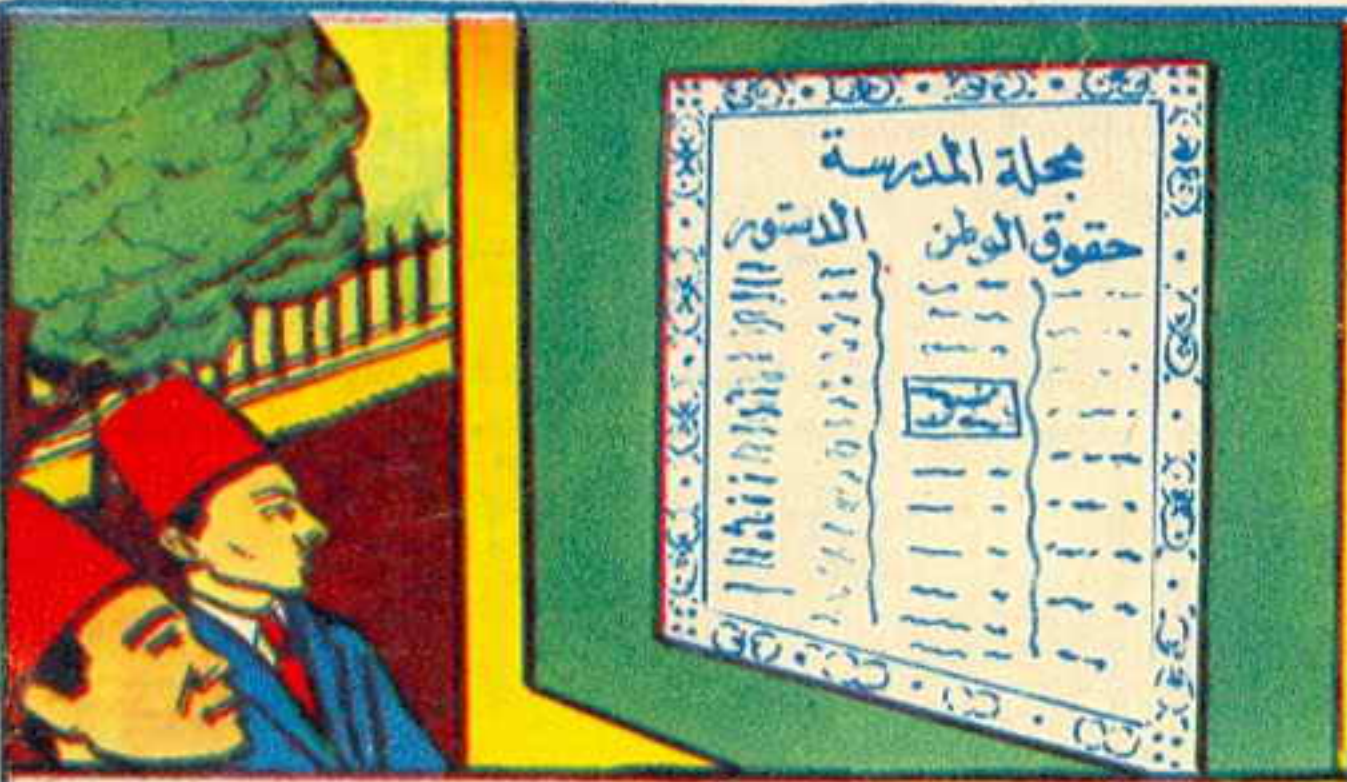 مجلة المدرسة
حقوق الوطن
الدستور